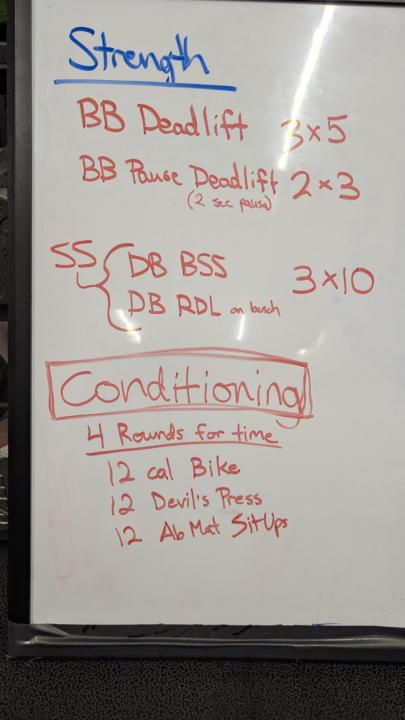 Strength
BB Deadlift 3x5
BB Pause Deadlift 2x3
(2 sec pause)
SS { DB BSS 3x10
DB RDL on bench
Conditioning
4 Rounds for time
12 cal Bike
12 Devil's Press
12 Ab Mat SitUps